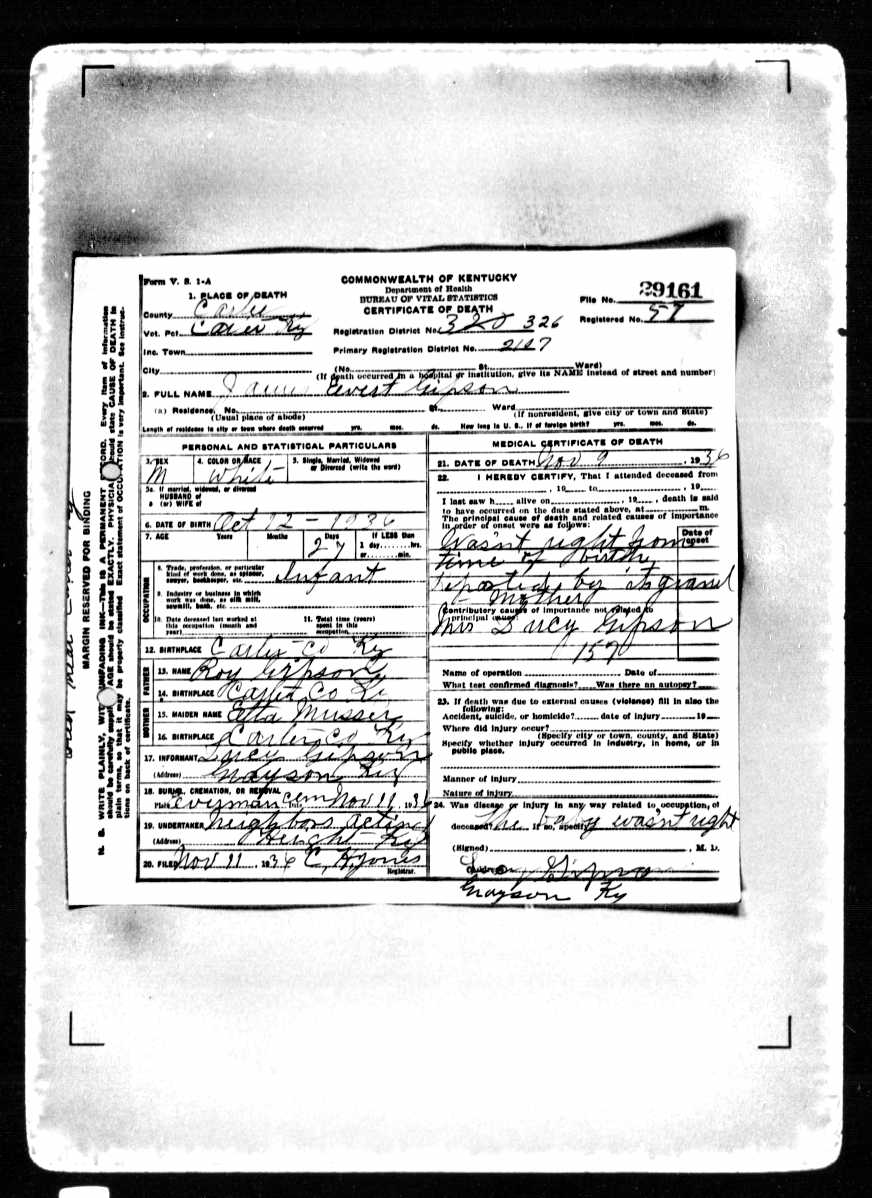 Form V. S. 1-A
COMMONWEALTH OF KENTUCKY
Department of Health
BUREAU OF VITAL STATISTICS
CERTIFICATE OF DEATH
File No. 29161
Registered No. 57
1. PLACE OF DEATH
County Carter
Vot. Pct. Carter Ky
Registration District No. 320 326
Inc. Town
Primary Registration District No. 2127
City (No. St. Ward)
(If death occurred in a hospital or institution, give its NAME instead of street and number)
2. FULL NAME Everst Gipson
(a) Residence. No. St. Ward
(Usual place of abode) (If nonresident, give city or town and State)
Length of residence in city or town where death occurred yrs. mos. ds. How long in U. S., if of foreign birth? yrs. mos. ds.
PERSONAL AND STATISTICAL PARTICULARS
3. SEX M
4. COLOR OR RACE White
5. Single, Married, Widowed or Divorced (write the word)
5a. If married, widowed, or divorced
HUSBAND of
(or) WIFE of
6. DATE OF BIRTH Oct 12 - 1936
7. AGE Years Months Days 27
If LESS than 1 day, hrs. or min.
OCCUPATION
8. Trade, profession, or particular kind of work done, as spinner, sawyer, bookkeeper, etc. Infant
9. Industry or business in which work was done, as silk mill, sawmill, bank, etc.
10. Date deceased last worked at this occupation (month and year)
11. Total time (years) spent in this occupation
12. BIRTHPLACE Carter Co Ky
FATHER
13. NAME Roy Gipson
14. BIRTHPLACE Carter Co Ky
MOTHER
15. MAIDEN NAME Etta Musser
16. BIRTHPLACE Carter Co Ky
17. INFORMANT Lucy Gipson
(Address) Grayson Ky
18. BURIAL, CREMATION, OR REMOVAL
Place Everman Cem Date Nov 11 1936
19. UNDERTAKER Neighbors acting
(Address) Ky
20. FILED Nov 11, 1936 C. H. Jones
Registrar.
MEDICAL CERTIFICATE OF DEATH
21. DATE OF DEATH Nov 9, 1936
22. I HEREBY CERTIFY, That I attended deceased from
, 19 to , 19
I last saw h alive on , 19 , death is said
to have occurred on the date stated above, at m.
The principal cause of death and related causes of importance
in order of onset were as follows:
Date of onset
Wasn't right from
time of birth
reported by
Mother
Contributory causes of importance not related to
principal cause:
Mrs Lucy Gipson
157
Name of operation Date of
What test confirmed diagnosis? Was there an autopsy?
23. If death was due to external causes (violence) fill in also the
following:
Accident, suicide, or homicide? date of injury 19
Where did injury occur?
(Specify city or town, county, and State)
Specify whether injury occurred in industry, in home, or in
public place.
Manner of injury
Nature of injury
24. Was disease or injury in any way related to occupation of
deceased? If so, specify The baby wasn't right
(Signed) , M. D.
Grayson Ky
MARGIN RESERVED FOR BINDING